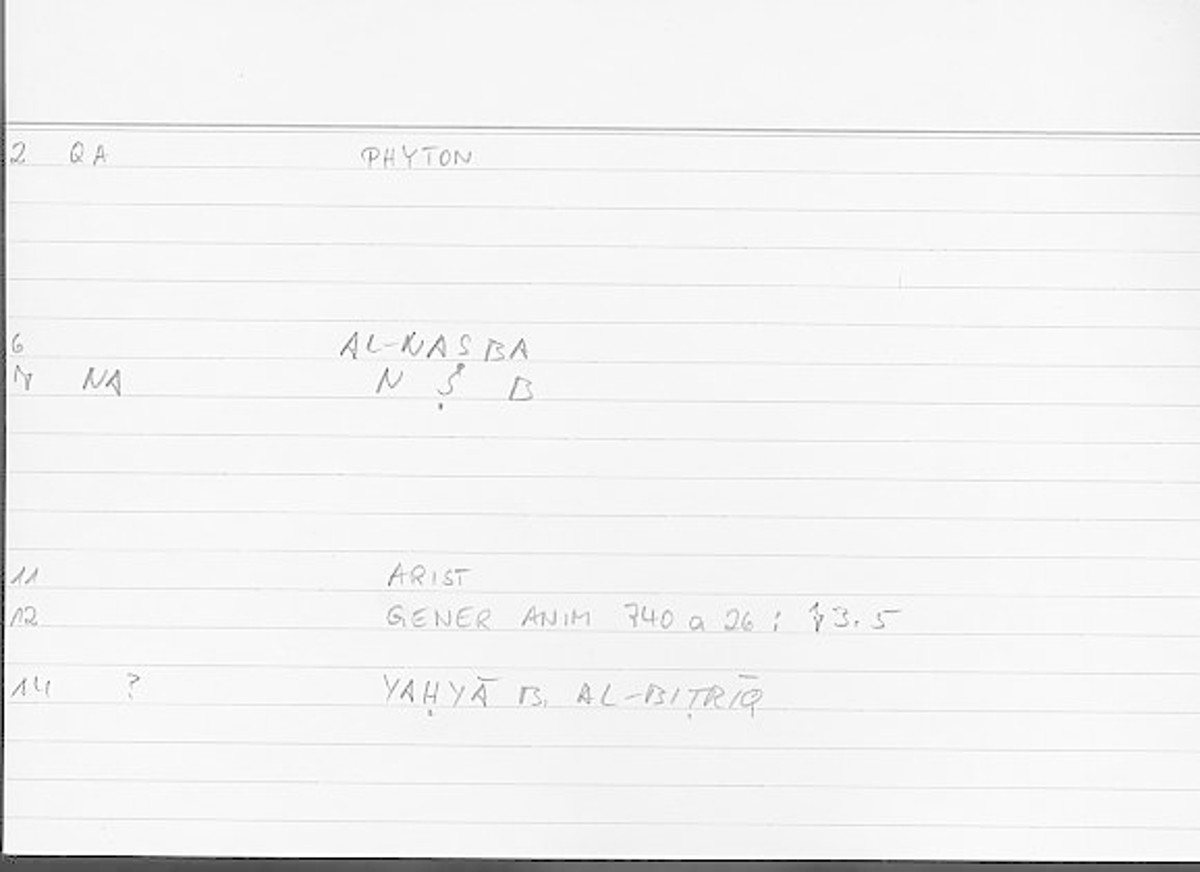 2 QA PHYTON
6 AL-NAṢBA
7 NA N Ṣ B
11 ARIST
12 GENER ANIM 740 a 26 ; 73.5
14 ? YAḤYĀ B. AL-BIṬRĪQ